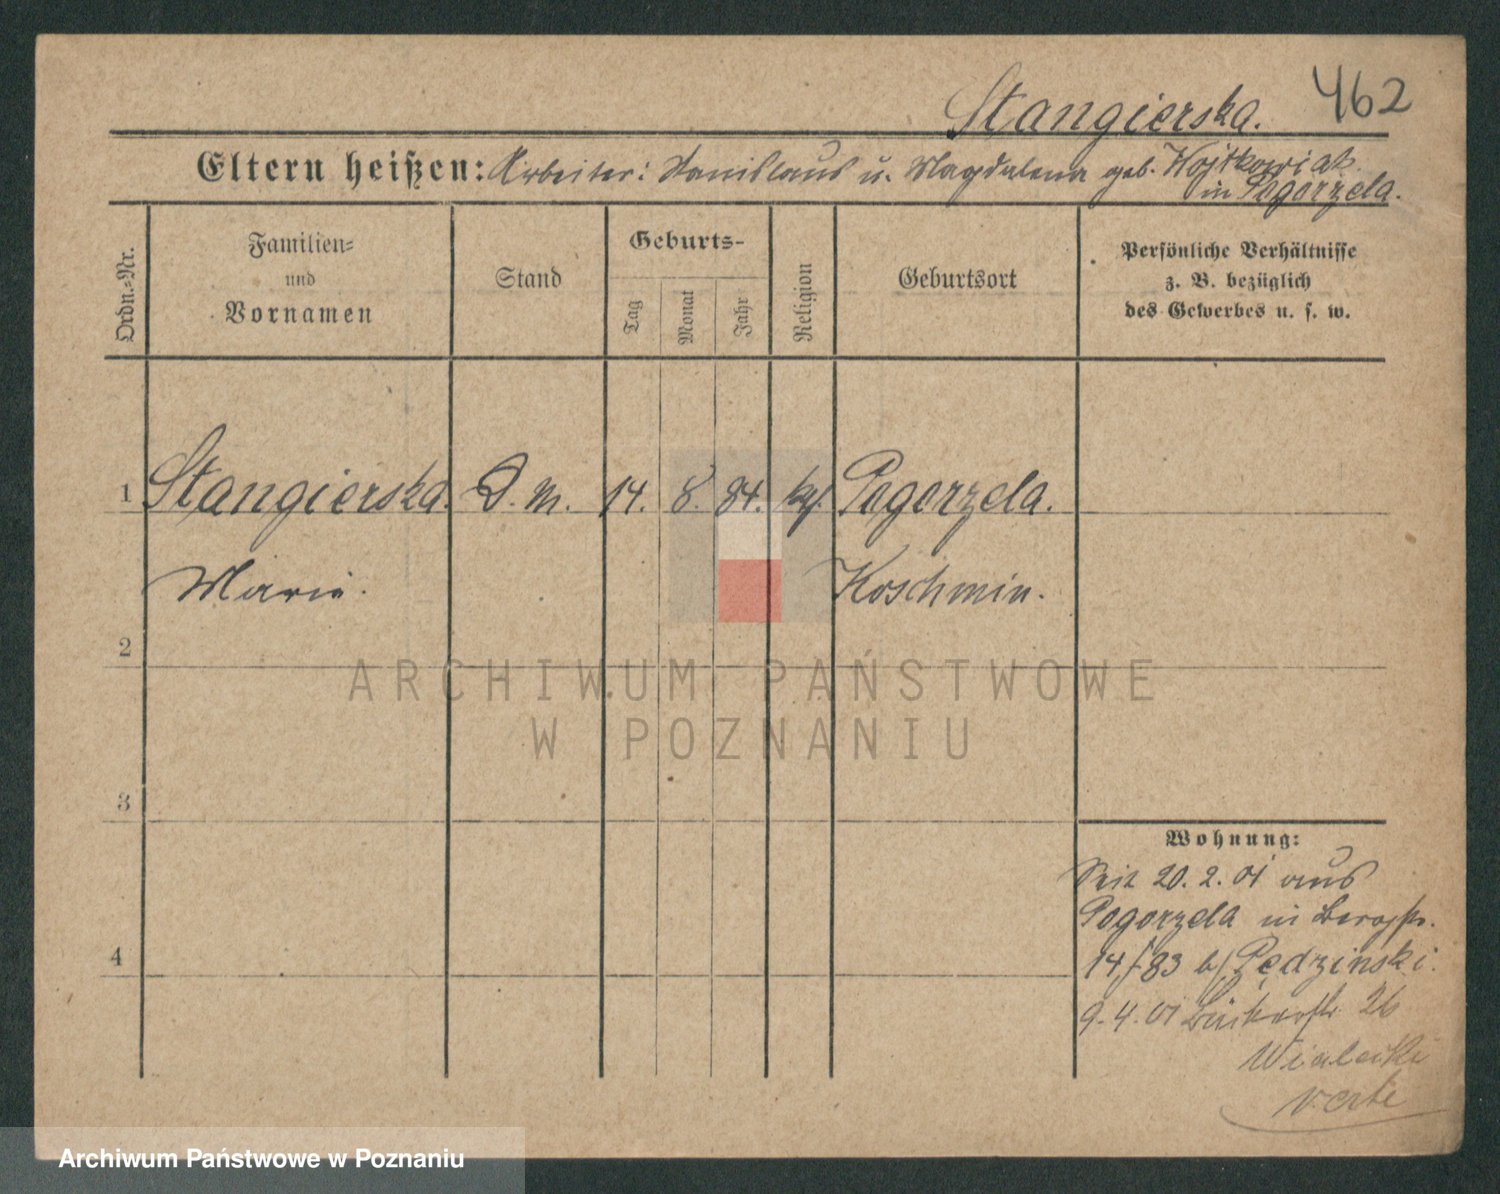 462
Stangierska.
Eltern heißen: Arbeiter: Stanislaus u. Magdalena geb. Wojtkowiak
in Pogorzela.
Ordn.-Nr.
Familien-
und
Vornamen
Stand
Geburts-
Tag
Monat
Jahr
Religion
Geburtsort
Persönliche Verhältnisse
z. B. bezüglich
des Gewerbes u. s. w.
1 Stangierska D. M. 14. 8. 84. kath. Pogorzela.
Marie. Koschmin.
2
3
4
Wohnung:
Seit 20. 2. 01 aus
Pogorzela in Bergstr.
14/83 b/ Pędzinski.
9. 4. 01 26
verte
ARCHIWUM PAŃSTWOWE
W POZNANIU
Archiwum Państwowe w Poznaniu